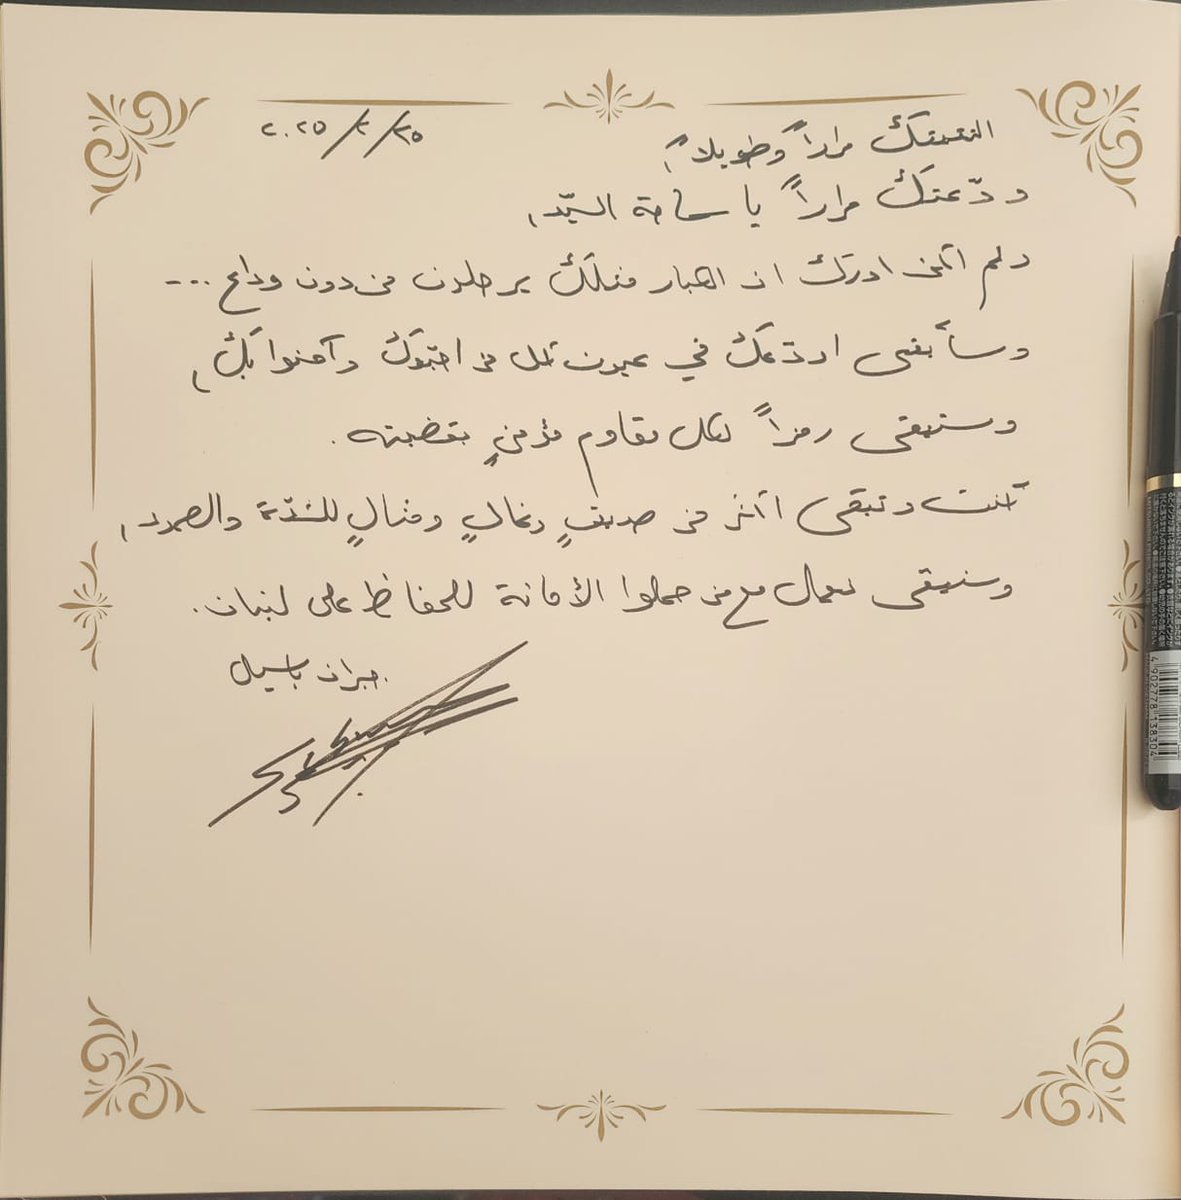 ٢٠٢٥/٢/٢٥
التقيتك مراراً وطويلاً،
ودّعتك مراراً يا سماحة السيّد،
ولم اكن ادرك ان الكبار مثلك يرحلون من دون وداع ...
وسأبقى اودّعك في عيون كل من احبّوك وآمنوا بك،
وستبقى رمزاً لكل مقاوم مؤمنٍ بقضيته.
كنت وتبقى اكثر من صديقٍ ومثالٍ للشدّة والصمود،
وسنبقى نعمل مع من حملوا الأمانة للحفاظ على لبنان.
جبران باسيل
4 902778 138304